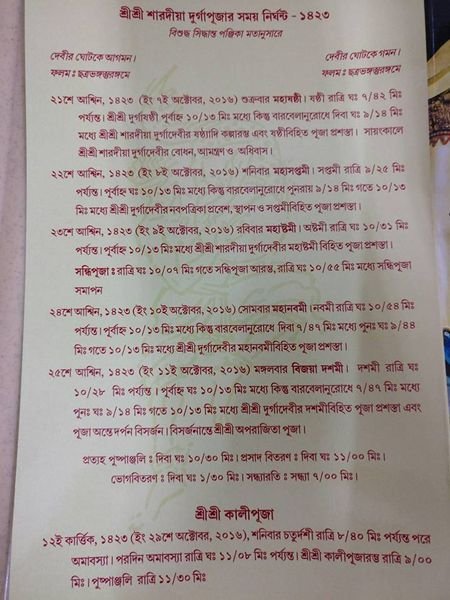 শ্রীশ্রী শারদীয়া দুর্গাপূজার সময় নির্ঘন্ট - ১৪২৩
বিশুদ্ধ সিদ্ধান্ত পঞ্জিকা মতানুসারে
দেবীর ঘোটকে আগমন।
দেবীর ঘোটকে গমন।
ফলমঃ ছত্রভঙ্গস্তুরঙ্গমে
ফলমঃ ছত্রভঙ্গস্তুরঙ্গমে
২১শে আশ্বিন, ১৪২৩ (ইং ৭ই অক্টোবর, ২০১৬) শুক্রবার মহাষষ্ঠী। ষষ্ঠী রাত্রি ঘঃ ৭/৪২ মিঃ
পর্য্যন্ত। শ্রীশ্রী দুর্গাষষ্ঠী পূর্বাহ্ন ১০/১৩ মিঃ মধ্যে কিন্তু বারবেলানুরোধে দিবা ঘঃ ৯/১৪ মিঃ
মধ্যে শ্রীশ্রী শারদীয়া দুর্গাদেবীর ষষ্ঠ্যাদি কল্পারম্ভ এবং ষষ্ঠীবিহিত পূজা প্রশস্তা। সায়ংকালে
শ্রীশ্রী শারদীয়া দুর্গাদেবীর বোধন, আমন্ত্রণ ও অধিবাস।
২২শে আশ্বিন, ১৪২৩ (ইং ৮ই অক্টোবর, ২০১৬) শনিবার মহাসপ্তমী। সপ্তমী রাত্রি ৯/২৫ মিঃ
পর্য্যন্ত। পূর্বাহ্ন ঘঃ ১০/১৩ মিঃ মধ্যে কিন্তু বারবেলানুরোধে পুনরায় ৯/১৪ মিঃ গতে ১০/১৩
মিঃ মধ্যে শ্রীশ্রী দুর্গাদেবীর নবপত্রিকা প্রবেশ, স্থাপন ও সপ্তমীবিহিত পূজা প্রশস্তা।
২৩শে আশ্বিন, ১৪২৩ (ইং ৯ই অক্টোবর, ২০১৬) রবিবার মহাষ্টমী। অষ্টমী রাত্রি ঘঃ ১০/৩১ মিঃ
পর্য্যন্ত। পূর্বাহ্ন ১০/১৩ মিঃ মধ্যে শ্রীশ্রী শারদীয়া দুর্গাদেবীর মহাষ্টমী বিহিত পূজা প্রশস্তা।
সন্ধিপূজা ঃ রাত্রি ঘঃ ১০/০৭ মিঃ গতে সন্ধিপূজা আরম্ভ, রাত্রি ঘঃ ১০/৫৫ মিঃ মধ্যে সন্ধিপূজা
সমাপন
২৪শে আশ্বিন, ১৪২৩ (ইং ১০ই অক্টোবর, ২০১৬) সোমবার মহানবমী। নবমী রাত্রি ঘঃ ১০/৫৪ মিঃ
পর্য্যন্ত। পূর্বাহ্ন ঘঃ ১০/১৩ মিঃ মধ্যে কিন্তু বারবেলানুরোধে দিবা ৭/৪৭ মিঃ মধ্যে পুনঃ ঘঃ ৯/৪৪
মিঃ গতে ১০/১৩ মিঃ মধ্যে শ্রীশ্রী দুর্গাদেবীর মহানবমীবিহিত পূজা প্রশস্তা।
২৫শে আশ্বিন, ১৪২৩ (ইং ১১ই অক্টোবর, ২০১৬) মঙ্গলবার বিজয়া দশমী। দশমী রাত্রি ঘঃ
১০/২৮ মিঃ পর্য্যন্ত। পূর্বাহ্ন ঘঃ ১০/১৩ মিঃ মধ্যে কিন্তু বারবেলানুরোধে ৭/৪৭ মিঃ মধ্যে
পুনঃ ঘঃ ৯/১৪ মিঃ গতে ১০/১৩ মিঃ মধ্যে শ্রীশ্রী দুর্গাদেবীর দশমীবিহিত পূজা প্রশস্তা এবং
পূজা অন্তে দর্পন বিসর্জন। বিসর্জনান্তে শ্রীশ্রী অপরাজিতা পূজা।
প্রত্যহ পুষ্পাঞ্জলি ঃ দিবা ঘঃ ১০/৩০ মিঃ। প্রসাদ বিতরণ ঃ দিবা ঘঃ ১১/০০ মিঃ।
ভোগবিতরণ ঃ দিবা ঘঃ ১/৩০ মিঃ। সন্ধ্যারতি ঃ সন্ধ্যা ৭/০০ মিঃ।
শ্রীশ্রী কালীপূজা
১২ই কার্ত্তিক, ১৪২৩ (ইং ২৯শে অক্টোবর, ২০১৬), শনিবার চতুর্দশী রাত্রি ৮/৪০ মিঃ পর্য্যন্ত পরে
অমাবস্যা। পরদিন অমাবস্যা রাত্রি ঘঃ ১১/০৮ মিঃ পর্য্যন্ত। শ্রীশ্রী কালীপূজারম্ভ রাত্রি ৯/০০
মিঃ। পুষ্পাঞ্জলি রাত্রি ১১/৩০ মিঃ